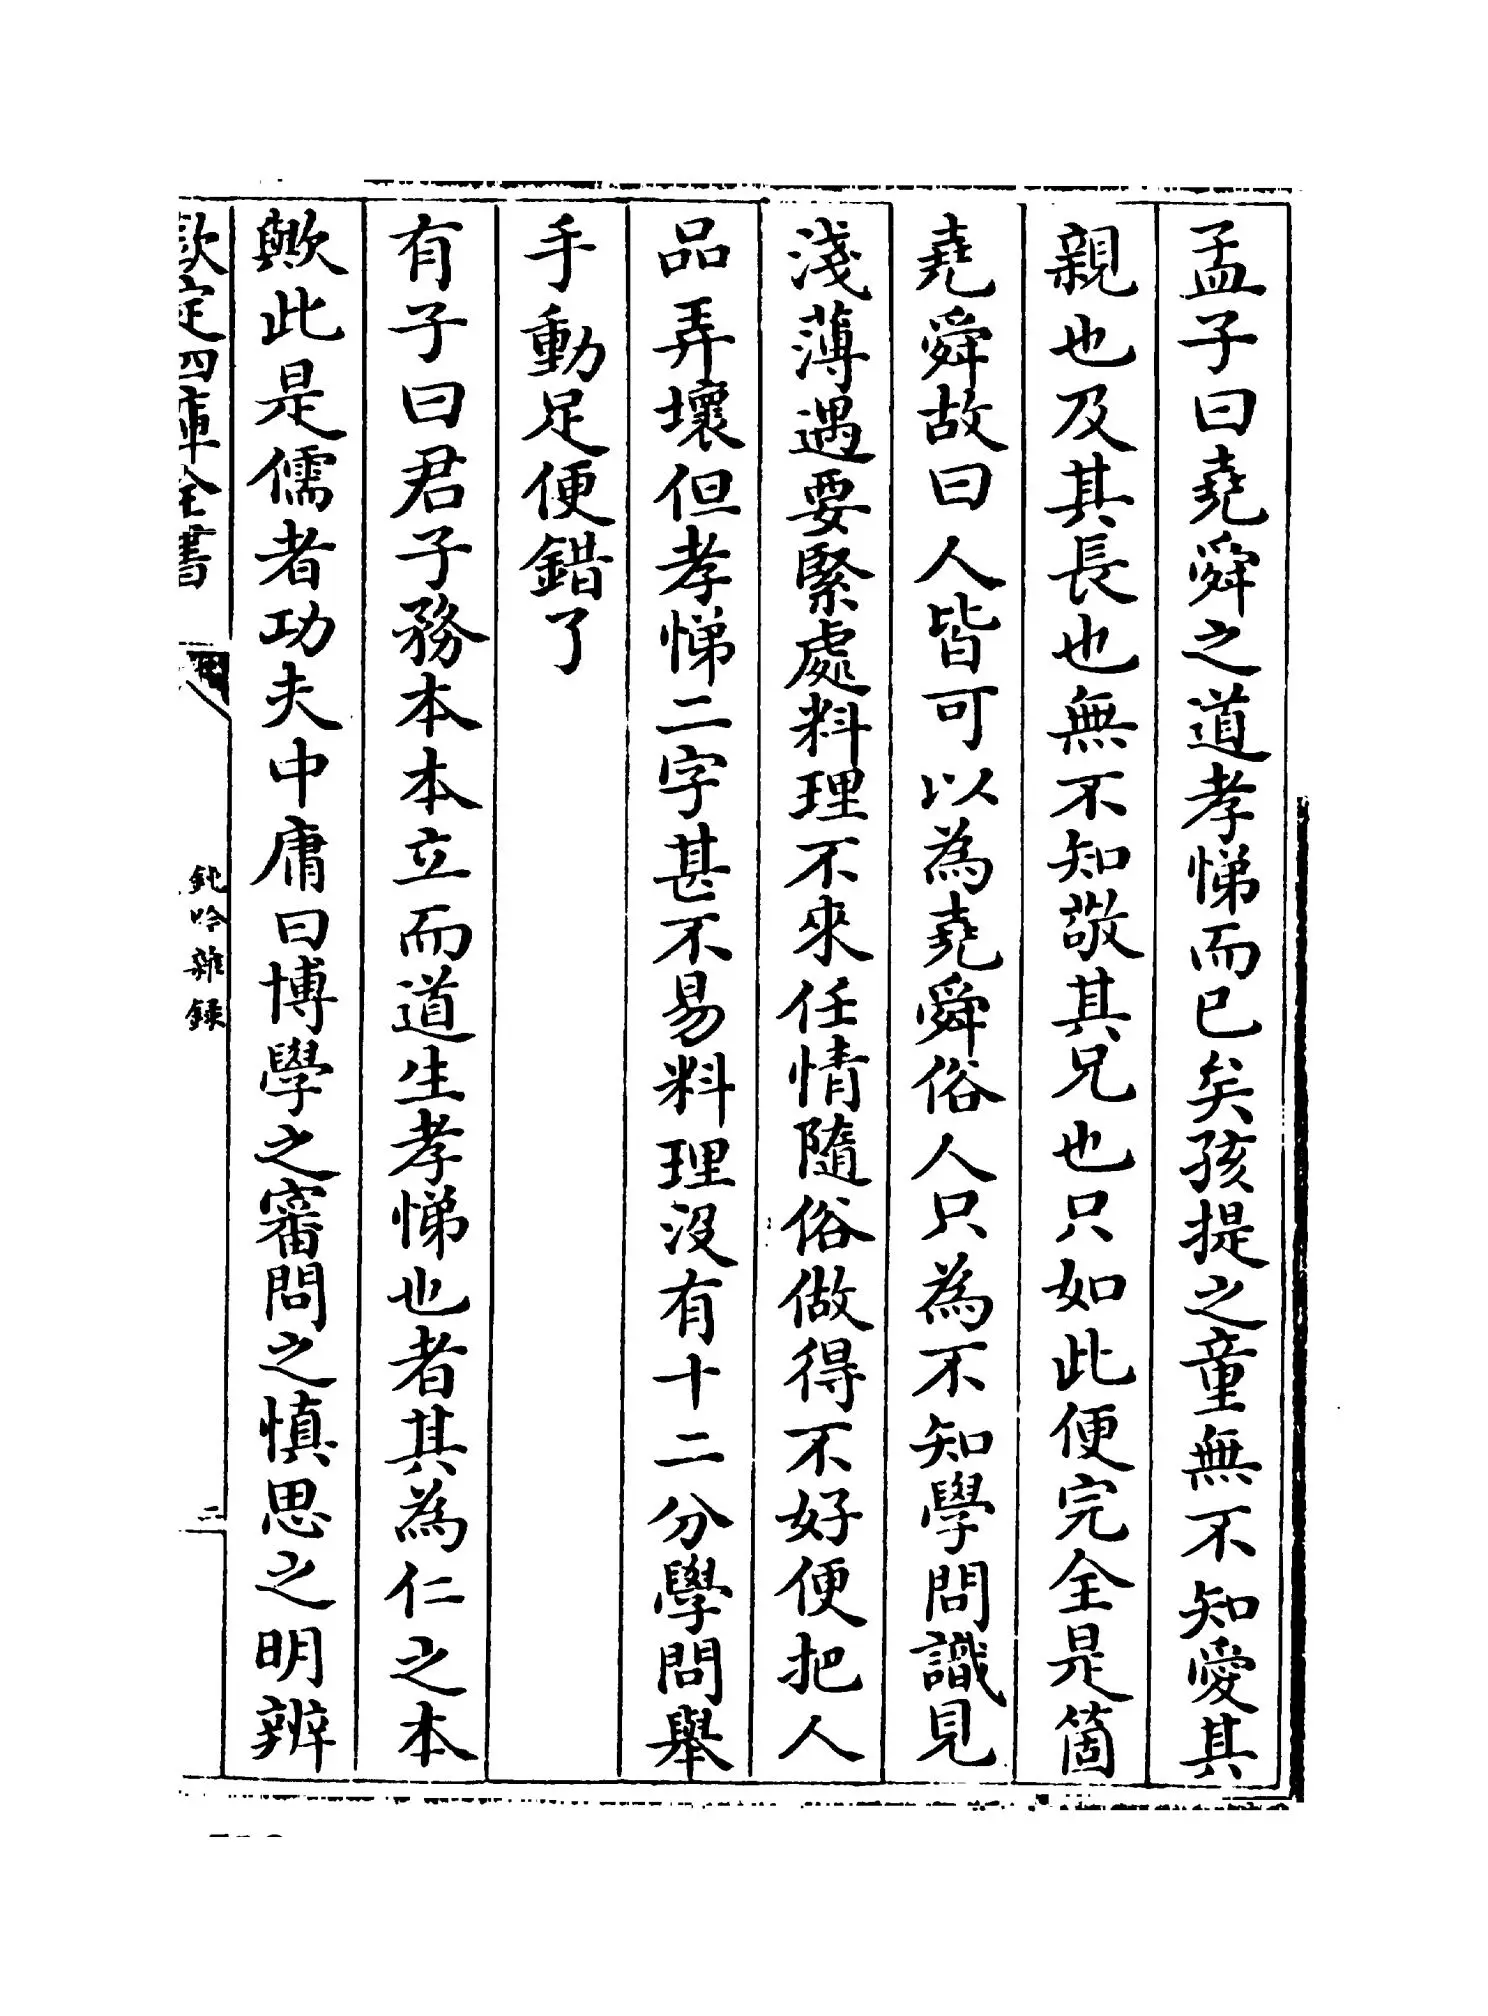 孟子曰堯舜之道孝悌而已矣孩提之童無不知愛其
親也及其長也無不知敬其兄也只如此便完全是箇
堯舜故曰人皆可以為堯舜俗人只為不知學問識見
淺薄遇要緊處料理不來任情隨俗做得不好便把人
品弄壞但孝悌二字甚不易料理沒有十二分學問舉
手動足便錯了
有子曰君子務本本立而道生孝悌也者其為仁之本
歟此是儒者功夫中庸曰博學之審問之慎思之明辨
欽定四庫全書
鈍吟雜錄
二